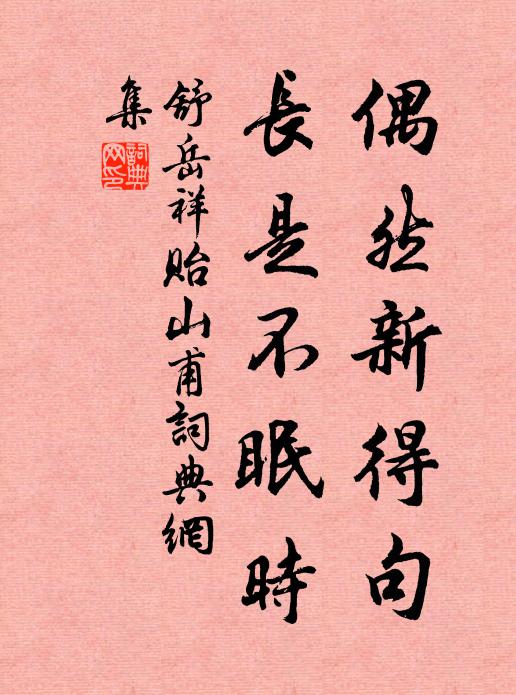 偶然新得句
長是不眠時
舒岳祥貽山甫詞典網
集
詞典網印